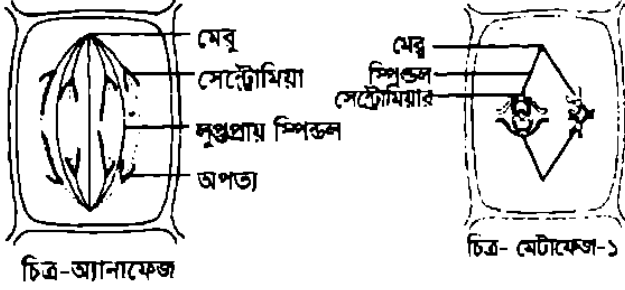 মেরু
সেন্ট্রোমিয়া
লুপ্তপ্রায় স্পিন্ডল
অপত্য
চিত্র-অ্যানাফেজ
মেরু
স্পিন্ডল
সেন্ট্রোমিয়ার
চিত্র- মেটাফেজ-১